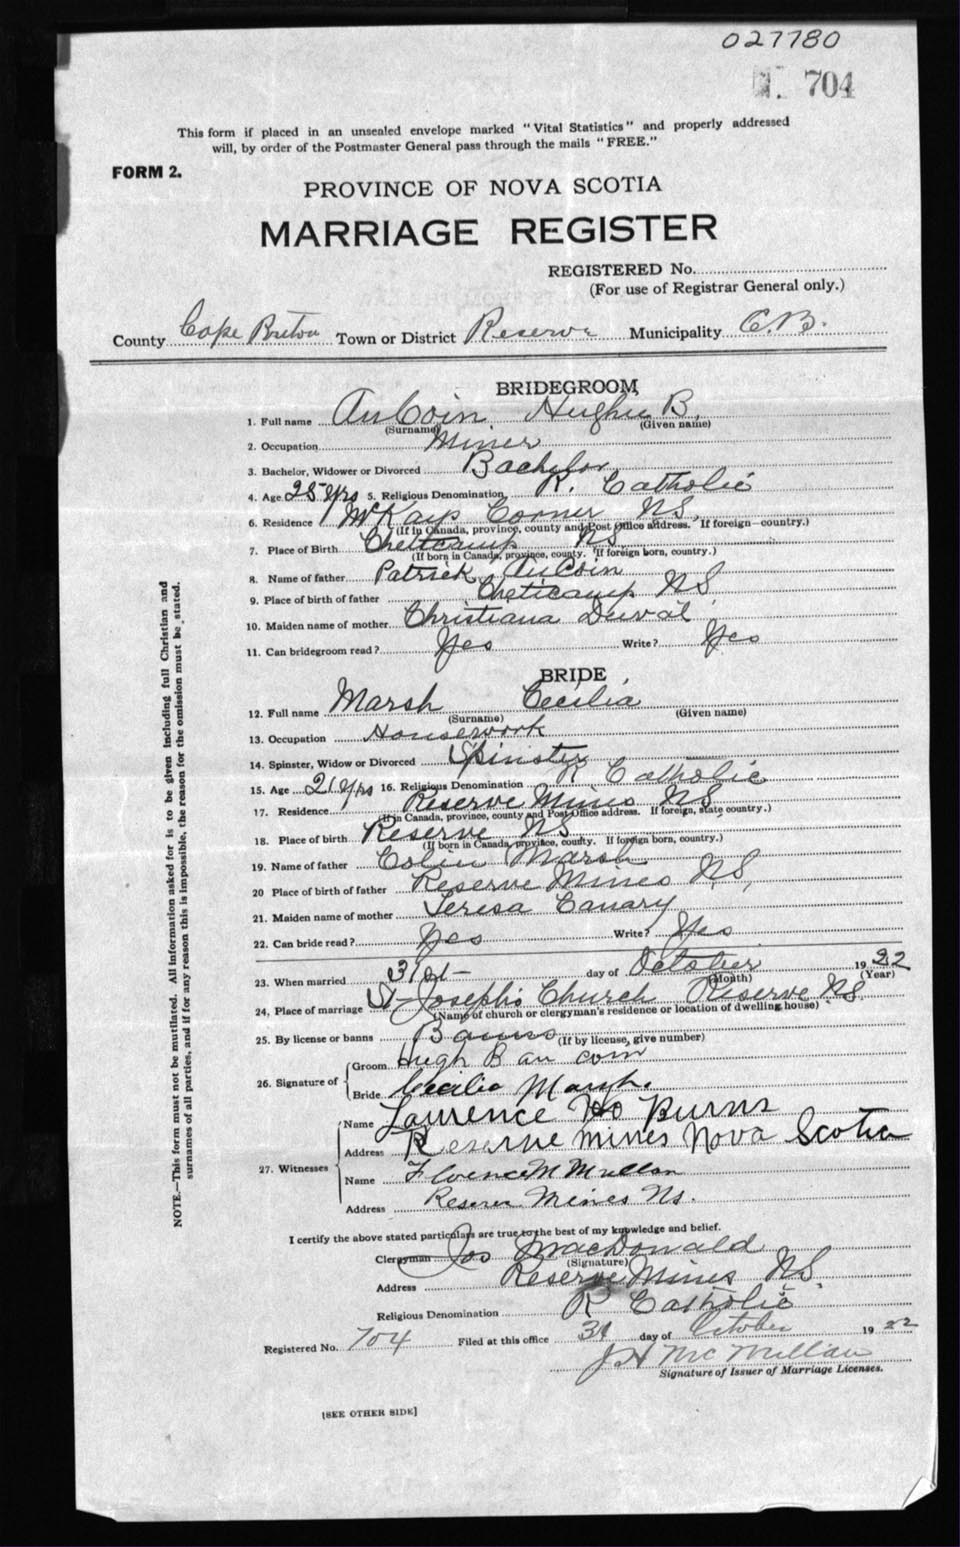 027780
704
This form if placed in an unsealed envelope marked "Vital Statistics" and properly addressed
will, by order of the Postmaster General pass through the mails "FREE."
FORM 2.
PROVINCE OF NOVA SCOTIA
MARRIAGE REGISTER
REGISTERED No.
(For use of Registrar General only.)
County Cape Breton Town or District Reserve Municipality C.B.
BRIDEGROOM
1. Full name AuCoin Hughie B.
(Surname) (Given name)
2. Occupation Miner
3. Bachelor, Widower or Divorced Bachelor
4. Age 25 yrs 5. Religious Denomination R. Catholic
6. Residence McKays Corner NS.
(If in Canada, province, county and Post Office address. If foreign—country.)
7. Place of Birth Cheticamp NS
(If born in Canada, province, county. If foreign born, country.)
8. Name of father Patrick AuCoin
9. Place of birth of father Cheticamp NS
10. Maiden name of mother Christiana Duval
11. Can bridegroom read? Yes Write? Yes
BRIDE
12. Full name Marsh Cecilia
(Surname) (Given name)
13. Occupation Housework
14. Spinster, Widow or Divorced Spinster
15. Age 21 yrs 16. Religious Denomination R Catholic
17. Residence Reserve Mines NS
(If in Canada, province, county and Post Office address. If foreign, state country.)
18. Place of birth Reserve NS
(If born in Canada, province, county. If foreign born, country.)
19. Name of father Colin Marsh
20 Place of birth of father Reserve Mines N.S.
21. Maiden name of mother Teresa Canary
22. Can bride read? Yes Write? Yes
23. When married 31st day of October 1922
(Month) (Year)
24. Place of marriage St Joseph's Church Reserve NS
(Name of church or clergyman's residence or location of dwelling house)
25. By license or banns Banns (If by license, give number)
26. Signature of
Groom Hugh B au coin
Bride Cecilia Marsh.
27. Witnesses
Name Laurence Burns
Address Reserve Mines Nova Scotia
Name Florence M Mullan
Address Reserve Mines Ns.
I certify the above stated particulars are true to the best of my knowledge and belief.
Clergyman Jos MacDonald
(Signature)
Address Reserve Mines N.S.
Religious Denomination R Catholic
Registered No. 704 Filed at this office 31 day of October 1922
J H McMullan
Signature of Issuer of Marriage Licenses.
[SEE OTHER SIDE]
NOTE.—This form must not be mutilated. All information asked for is to be given including full Christian and
surnames of all parties, and if for any reason this is impossible, the reason for the omission must be stated.